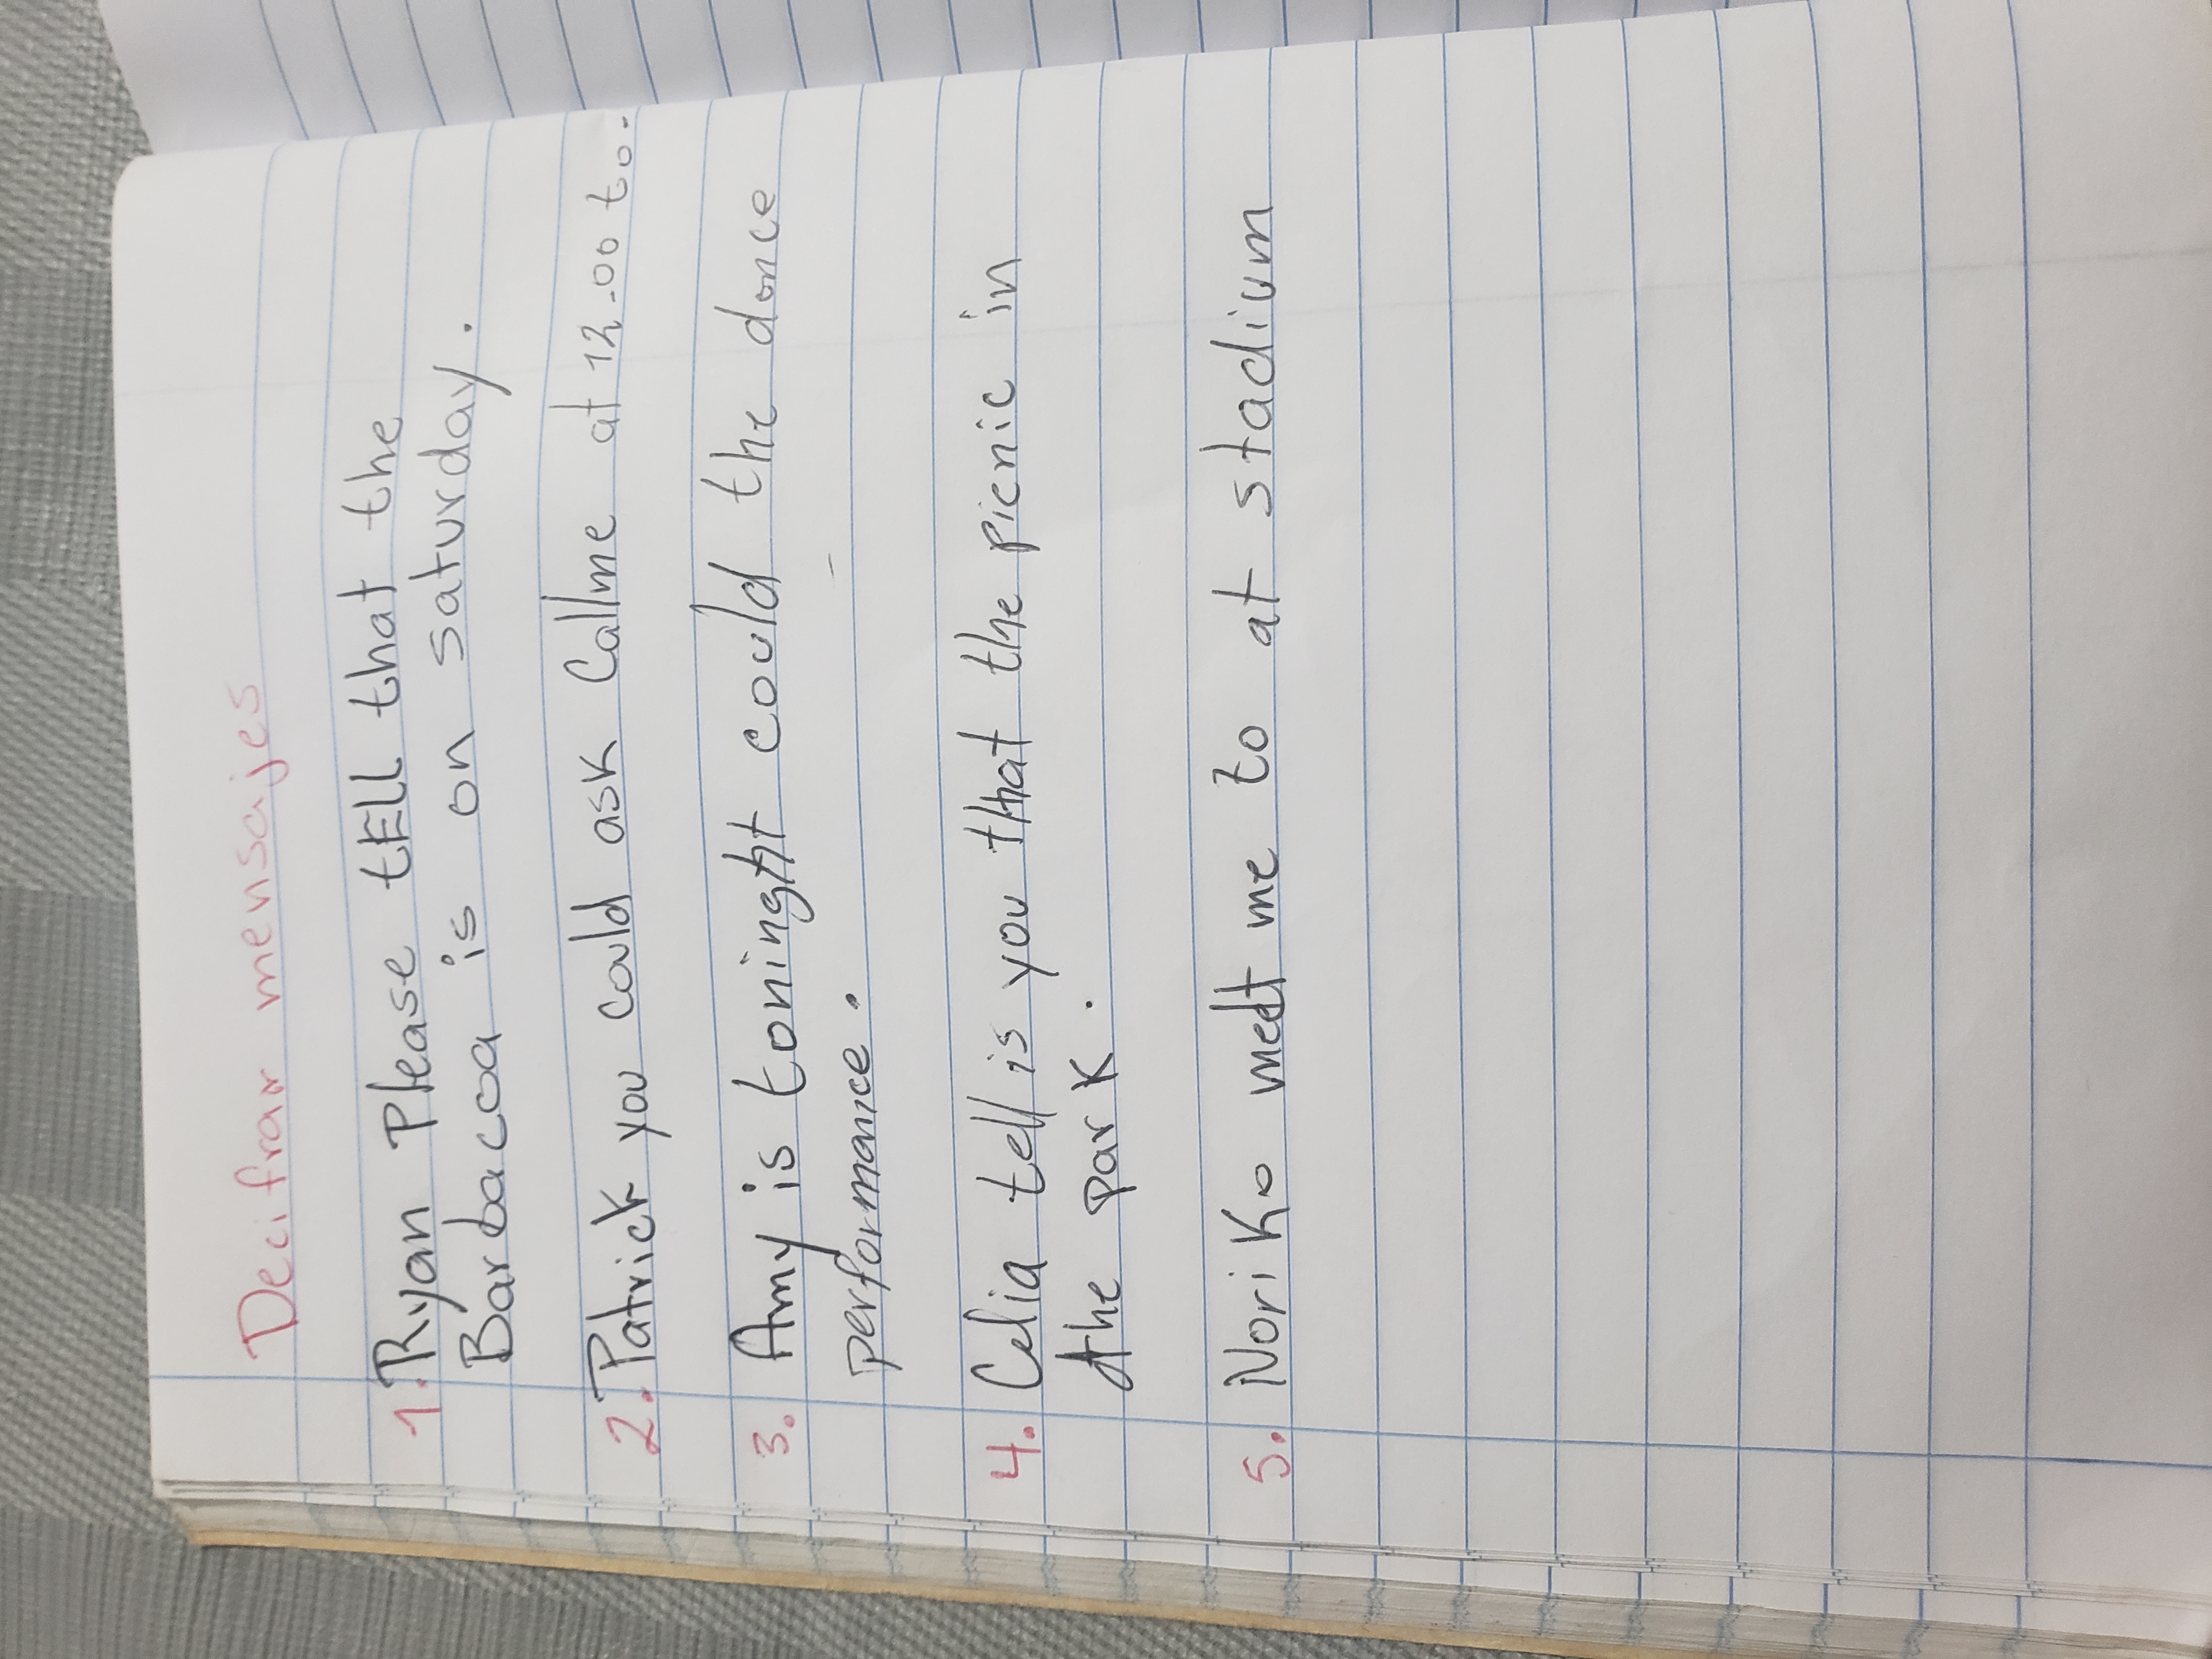 Decifrar mensajes
1. Ryan Please tELL that the
Barbacoa is on saturday.
2. Patrick you could ask Callme at 12-00 to.
3. Amy is toninght could the dance
performance.
4. Celia tell is you that the picnic in
the park.
5. Noriko meet me to at stadium